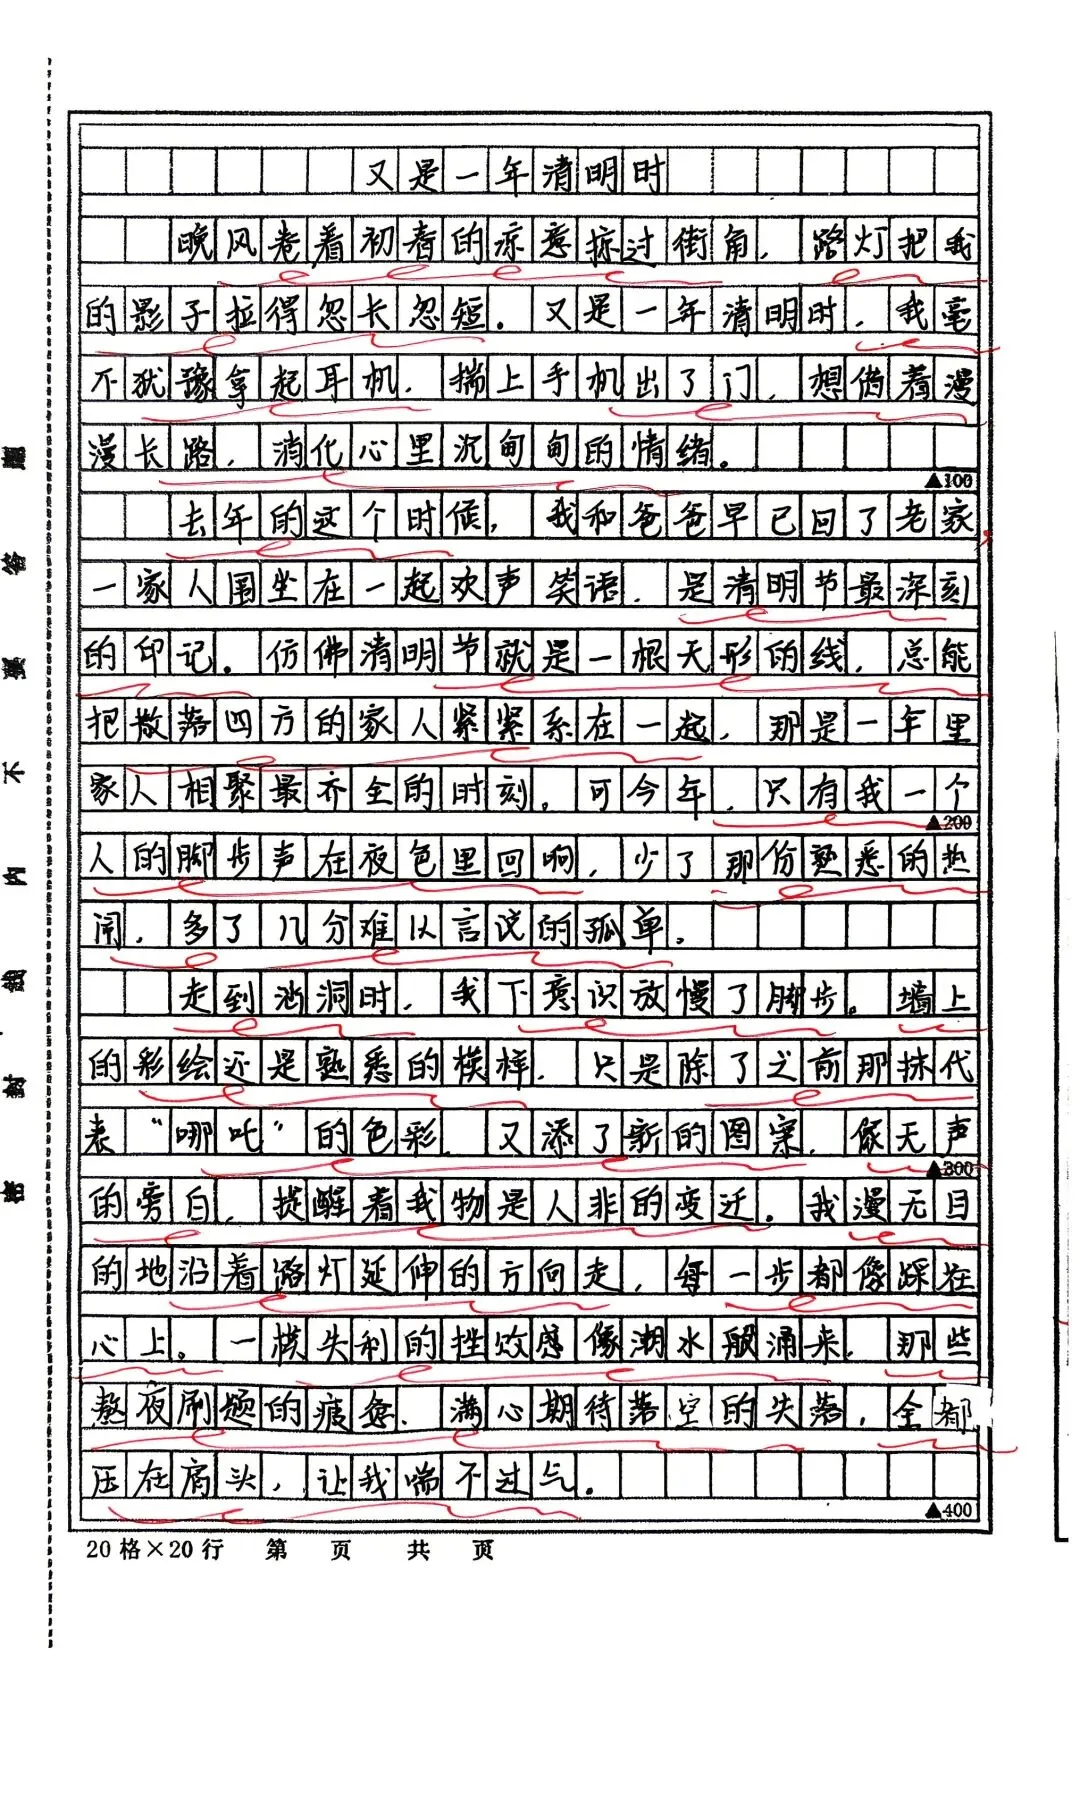 又是一年清明时
晚风卷着初春的凉意掠过街角，路灯把我
的影子拉得忽长忽短。又是一年清明时，我毫
不犹豫拿起耳机，揣上手机出了门，想借着漫
漫长路，消化心里沉甸甸的情绪。
▲100
去年的这个时候，我和爸爸早已回了老家，
一家人围坐在一起欢声笑语，是清明节最深刻
的印记。仿佛清明节就是一根无形的线，总能
把散落四方的家人紧紧系在一起，那是一年里
家人相聚最齐全的时刻。可今年，只有我一个
▲200
人的脚步声在夜色里回响，少了那份熟悉的热
闹，多了几分难以言说的孤单。
走到涵洞时，我下意识放慢了脚步。墙上
的彩绘还是熟悉的模样，只是除了之前那抹代
表“哪吒”的色彩，又添了新的图案，像无声
▲300
的旁白，提醒着我物是人非的变迁。我漫无目
的地沿着路灯延伸的方向走，每一步都像踩在
心上。一模失利的挫败感像潮水般涌来，那些
熬夜刷题的疲惫，满心期待落空的失落，全都
压在肩头，让我喘不过气。
▲400
20格×20行 第 页 共 页